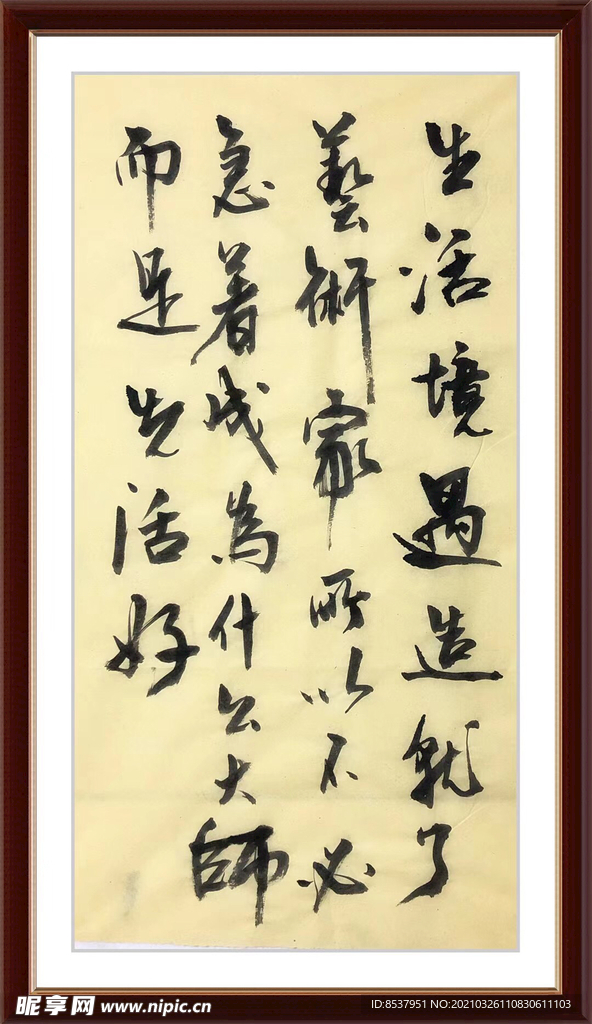 生活境遇造就了
藝術家所以不必
急着成為什么大師
而是先活好
昵享网 www.nipic.cn
ID:8537951 NO:20210326110830611103